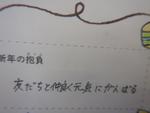 新年の抱負
友だちと仲良く元気にがんばる